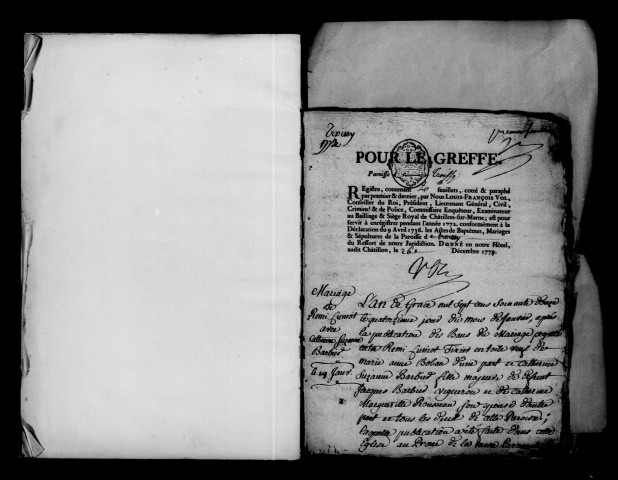 Troissy
1772
POUR LE GREFFE.
Paroisse de Troissy
Registre, contenant feuillets, cotté & paraphé
par premier & dernier, par Nous LOUIS-FRANÇOIS VOL,
Conseiller du Roi, Président, Lieutenant Général, Civil,
Criminel & de Police, Commissaire Enquêteur, Examinateur
au Bailliage & Siége Royal de Châtillon-sur-Marne; est pour
servir à enregistrer pendant l'année 1772. conformément à la
Déclaration du 9 Avril 1736. les Actes de Baptêmes, Mariages
& Sépultures de la Paroisse de Troissy
du Ressort de notre Juridiction. DONNÉ en notre Hôtel,
audit Châtillon, le 26e Décembre 1771.
Vol
Mariage
de
Remi Cumot
avec
Catherine Suzanne
Barbied
le 14 Janv.
L'an de Grace mil sept cens soixante douze
le quatorzieme jour du mois de Janvier, après
la publication des Bans de Mariage
entre Remi Cumot en toile veuf de
marie anne d'une part et catherine
Suzanne Barbied fille majeure de defunt
Jacques Barbied vigneron et de catherine
Marguerite Rousseau d'autre
part en tous les deux de cette Paroisse;
publication a été faite dans cette
Eglise au Prone de la messe